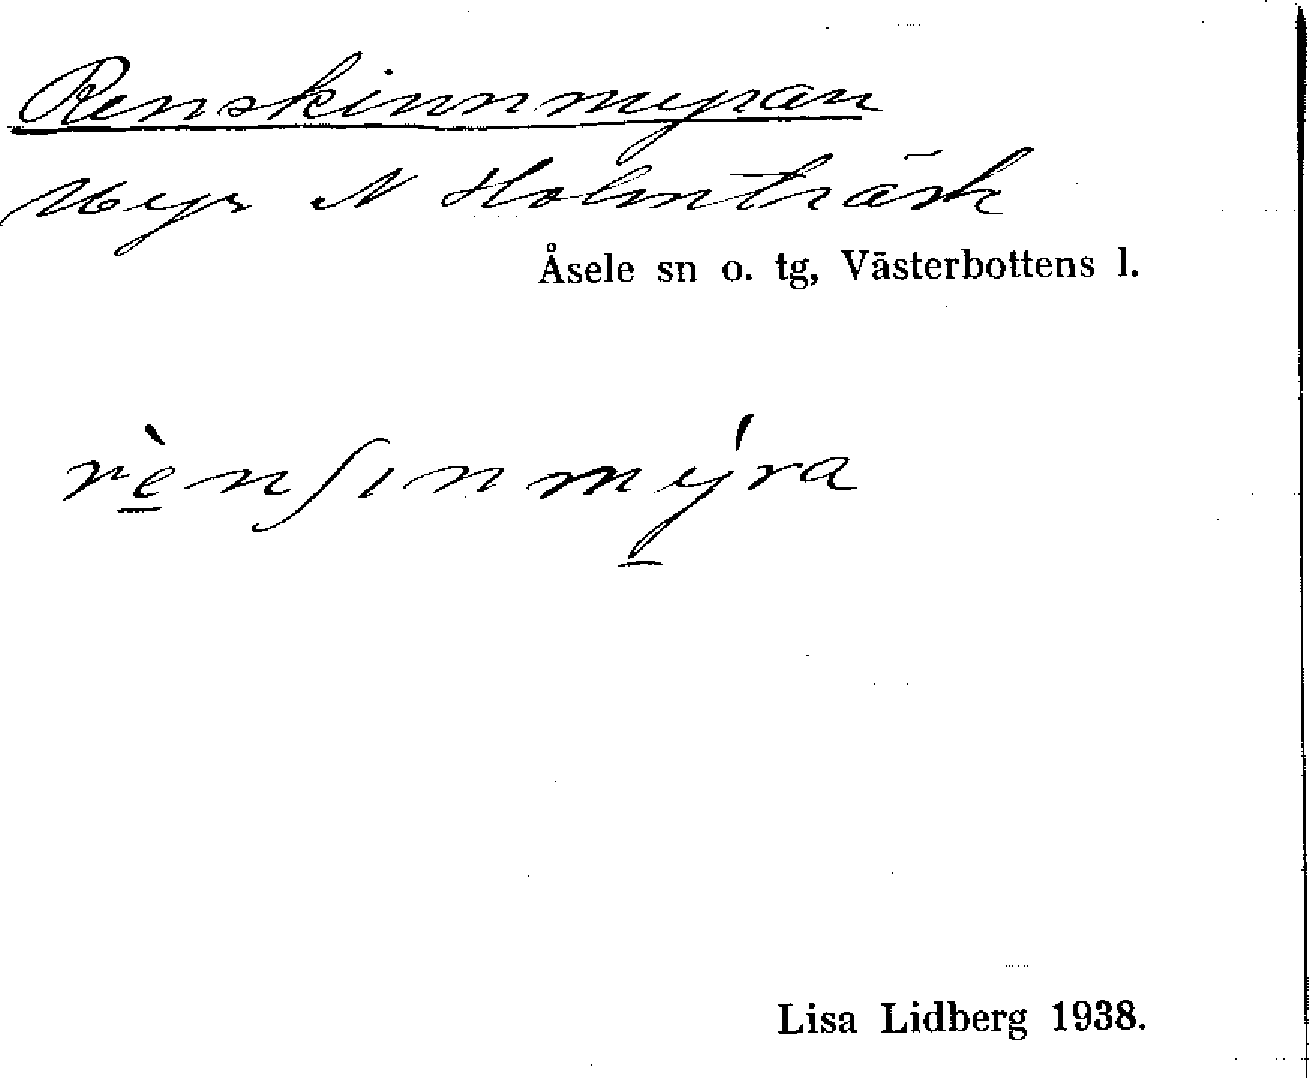 Renskinnmyran
Myr N Holmträsk
Åsele sn o. tg, Västerbottens l.
rè̱nʃınmý̱ra
Lisa Lidberg 1938.